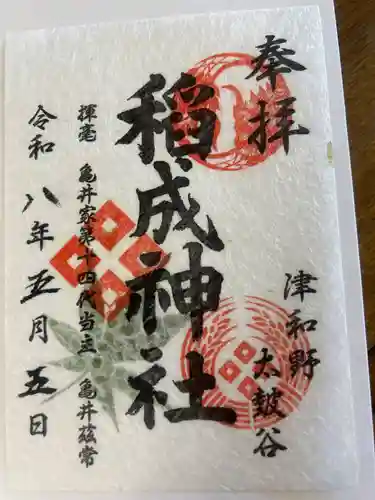 奉拝
津和野
太皷谷
稲成神社
揮毫 亀井家第十四代当主 亀井茲常
令和八年五月五日